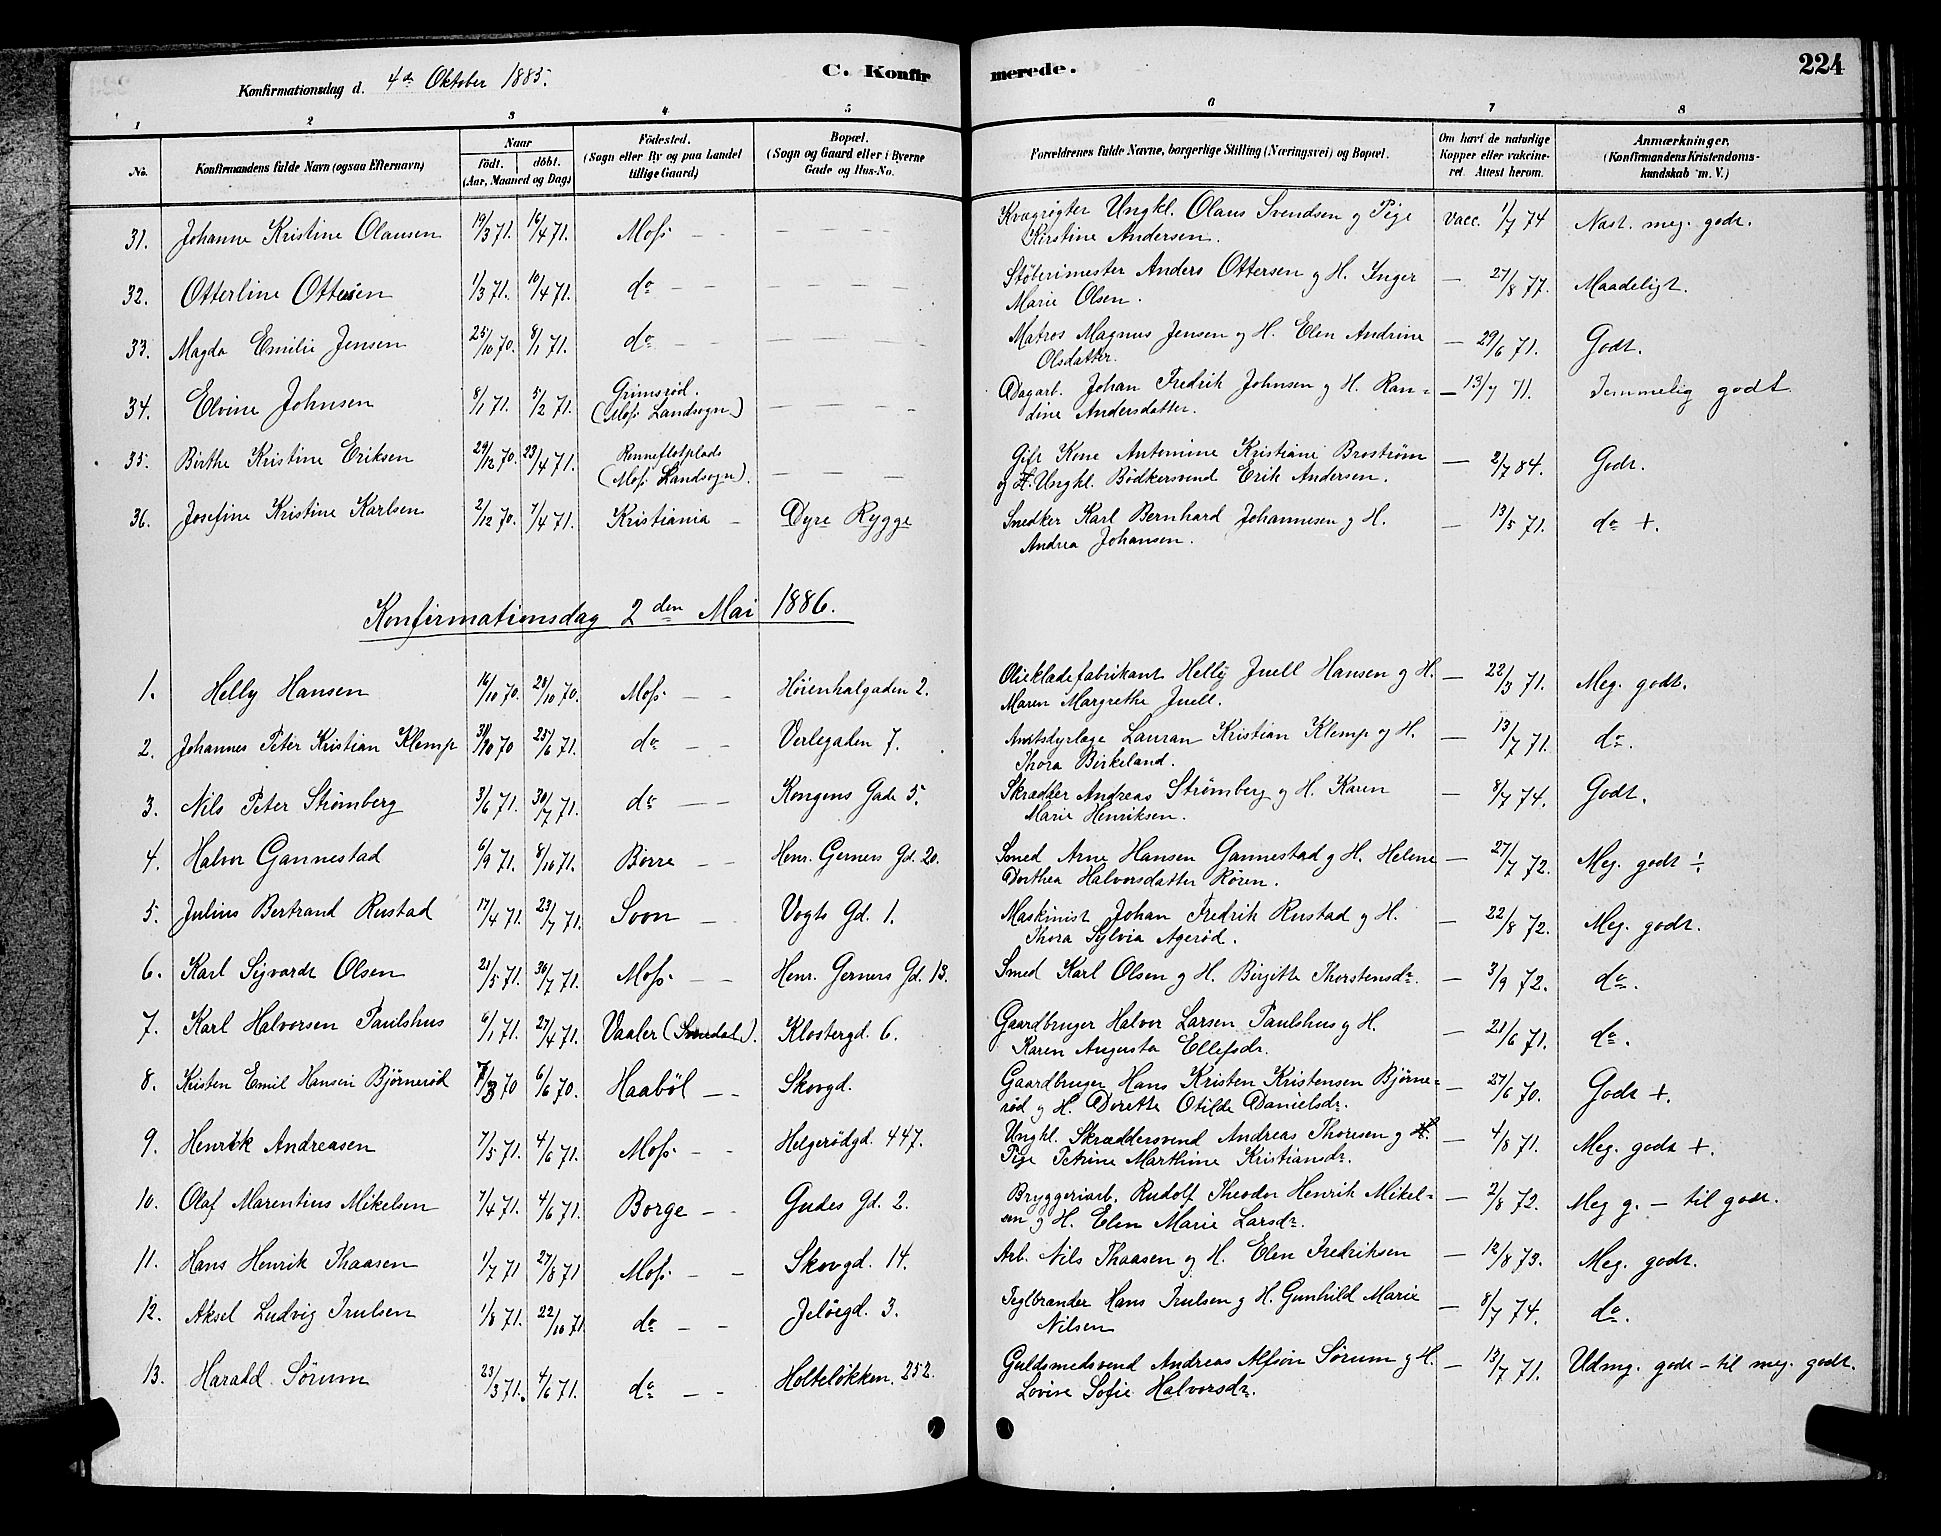 Konfirmationsdag d. 4de Oktober 1885.
C. Konfirmerede.
224
1 2 3 4 5 6 7 8
No.
Konfirmandens fulde Navn (ogsaa Efternavn)
Naar
födt. döbt.
(Aar, Maaned og Dag)
Födested.
(Sogn eller By og paa Landet
tillige Gaard)
Bopæl.
(Sogn og Gaard eller i Byerne
Gade og Hus-No.
Forældrenes fulde Navne, borgerlige Stilling (Næringsvei) og Bopæl.
Om havt de naturlige
Kopper eller vakcine-
ret. Attest herom.
Anmærkninger,
(Konfirmandens Kristendoms-
kundskab m. V.)
31. Johanne Kristine Olausen 19/3 71. 16/4 71. Moss – – – – – – Kvægrøgter Ungkl. Olaus Svendsen og Pige
Kirstine Andersen. Vacc. 1/7 74 Nast. meg. godt.
32. Otterline Ottesen 1/3 71. 10/4 71. do – – – – – – Støberimester Anders Ottersen og H. Inger
Marie Olsen. — 27/8 77. Maadeligt.
33. Magda Emilie Jensen 25/10 70. 8/1 71. do – – – – – – Matros Magnus Jensen og H. Elen Andrine
Olsdatter. — 29/6 71. Godt.
34. Elvine Johnsen 8/1 71. 5/2 71. Grimsrød.
(Moss Landsogn) – – – – Dagarb. Johan Fredrik Johnsen og H. Ran=
dine Andersdatter. — 13/7 71. Temmelig godt
35. Birthe Kristine Eriksen 29/12 70. 23/4 71. Renneflotplads
(Moss Landsogn). – – – Gift Kone Antonine Kristiane Broström
og H. Ungkl. Bödkersvend Erik Andersen. — 2/7 84. Godt.
36. Josefine Kristine Karlsen 2/12 70. 7/4 71. Kristiania – Dyre Rygge Snedker Karl Bernhard Johannesen og H.
Andrea Johansen. — 13/5 71. do +.
Konfirmationsdag 2den Mai 1886.
1. Helly Hansen 16/10 70. 28/10 70. Moss – – Höienhalgaden 2. Oliekladefabrikant Helly Juell Hansen og H.
Maren Margrethe Juell. — 22/3 71. Meg. godt.
2. Johannes Peter Kristian Klemp 31/10 70 25/6 71. do – – Verlegaden 7. Amtsdyrlæge Lauran Kristian Klemp og H.
Thora Birkeland. — 13/7 71. do.
3. Nils Peter Strømberg 3/6 71. 30/7 71. do – – Kongens Gade 5. Skrædder Andreas Strømberg og H. Karen
Marie Henriksen. — 8/7 74. Godt.
4. Halvor Gannestad 6/9 71. 8/10 71. Borre – – Henr. Gerners Gd. 20. Smed Arne Hansen Gannestad og H. Helene
Dorthea Halvorsdatter Røren. — 27/7 72. Meg. godt ÷
5. Julius Bertrand Rustad 17/4 71. 23/7 71. Soon – Vogts Gd. 1. Maskinist Johan Fredrik Rustad og H.
Thora Sylvia Agerød. — 22/8 72. Meg. godt.
6. Karl Sigvardt Olsen 21/5 71. 30/7 71. Moss – – Henr. Gerners Gd. 13. Smed Karl Olsen og H. Birgitte Thorstensdr. — 3/9 72. do.
7. Karl Halvorsen Paulshus 6/1 71. 27/4 71. Vaaler (Svindal). Klostergd. 6. Gaardbruger Halvor Larsen Paulshus og H.
Karen Augusta Ellefsdr. — 21/6 71. do.
8. Kristen Emil Hansen Björnerød 7/3 70 6/6 70. Haaböl – – Skovgd. Gaardbruger Hans Kristen Kristensen Björne=
rød og H. Dorette Otilde Danielsdr. — 27/6 70. Godt +.
9. Henrik Andreasen 7/5 71. 4/6 71. Moss – – Helgerödgd. 447. Ungkl. Skræddersvend Andreas Thoresen og H.
Pige Petrine Marthine Kristiansdr. — 4/8 71. Meg. godt +.
10. Olaf Marentius Mikelsen 7/4 71. 4/6 71. Borge – – Gudes Gd. 2. Bryggeriarb. Rudolf Theodor Henrik Mikel=
sen og H. Elen Marie Larsdr. — 2/8 72. Meg g. – til godt.
11. Hans Henrik Thaasen 1/7 71 27/8 71 Moss – – Skovgd. 14. Arb. Nils Thaasen og H. Elen Fredriksen — 12/8 73. Meg. godt.
12. Aksel Ludvig Trulsen 1/8 71. 22/10 71 do – – Jelöegd. 3. Teglbrænder Hans Trulsen og H. Gunhild Marie
Nilsen — 8/7 74. do.
13. Harald Sörum 23/3 71. 4/6 71. do – – Holteløkken. 252. Guldsmedsvend Andreas Alfson Sörum og H.
Lovise Sofie Halvorsdr. — 13/7 71. Udmg. godt – til meg. godt.